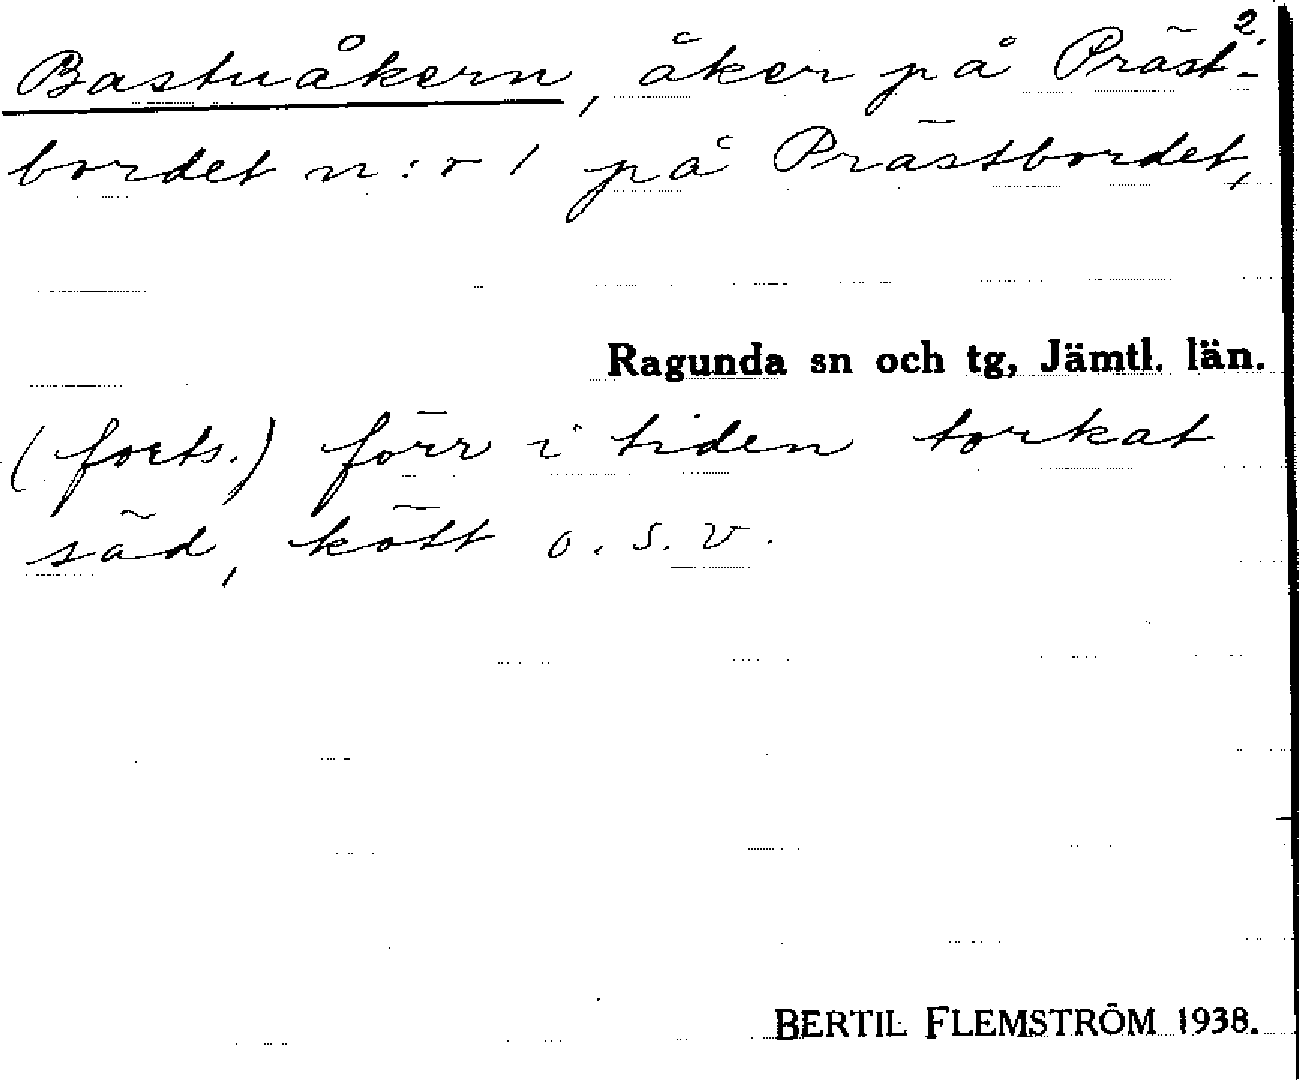 2.
Bastuåkern, åker på Präst-
bordet n:o 1 på Prästbordet,
Ragunda sn och tg, Jämtl. län.
(forts.) förr i tiden torkat
säd, kött o.s.v.
BERTIL FLEMSTRÖM 1938.